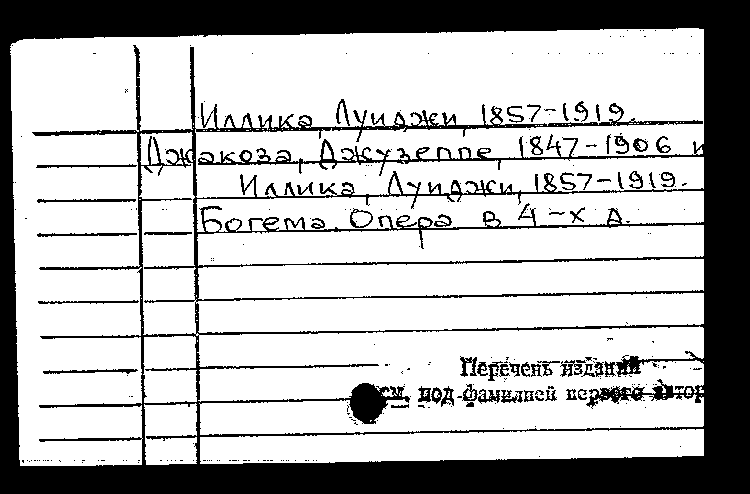 Иллика, Луиджи, 1857-1919.
Джакоза, Джузеппе, 1847-1906 и
Иллика, Луиджи, 1857-1919.
Богема. Опера в 4-х д.
Перечень изданий
см. под фамилией первого автор